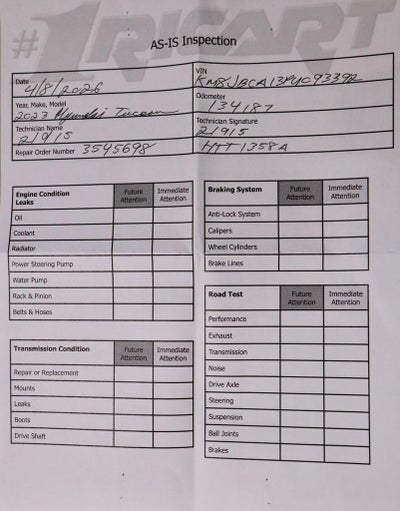 #1RICART
AS-IS Inspection
Date
4/8/2026
VIN
KM8JBCA13PUC93392
Year, Make, Model
2023 Hyundai Tucson
Odometer
134187
Technician Name
21915
Technician Signature
21915
Repair Order Number 3545698
HTT 1358A
Engine Condition
Leaks
Future
Attention
Immediate
Attention
Oil
Coolant
Radiator
Power Steering Pump
Water Pump
Rack & Pinion
Belts & Hoses
Transmission Condition
Future
Attention
Immediate
Attention
Repair or Replacement
Mounts
Leaks
Boots
Drive Shaft
Braking System
Future
Attention
Immediate
Attention
Anti-Lock System
Calipers
Wheel Cylinders
Brake Lines
Road Test
Future
Attention
Immediate
Attention
Performance
Exhaust
Transmission
Noise
Drive Axle
Steering
Suspension
Ball Joints
Brakes